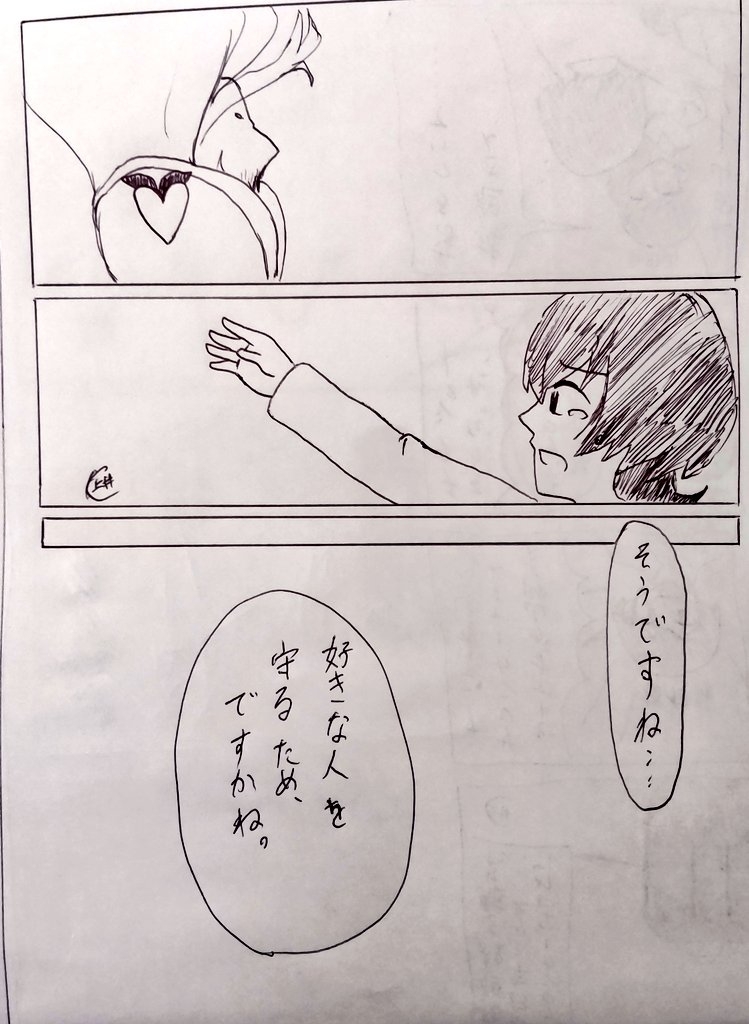 そうですね…
好きな人を
守るため、
ですかね。